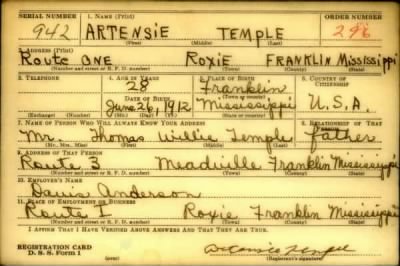 SERIAL NUMBER 1. NAME (Print) ORDER NUMBER
942 ARTENSIE TEMPLE 296
(First) (Middle) (Last)
2. ADDRESS (Print)
Route ONE Roxie FRANKLIN Mississippi
(Number and street or R. F. D. number) (Town) (County) (State)
3. TELEPHONE 4. AGE IN YEARS 5. PLACE OF BIRTH 6. COUNTRY OF CITIZENSHIP
28 Franklin
DATE OF BIRTH (Town or county)
June 26, 1912 Mississippi U.S.A.
(Exchange) (Number) (Mo.) (Day) (Yr.) (State or country)
7. NAME OF PERSON WHO WILL ALWAYS KNOW YOUR ADDRESS 8. RELATIONSHIP OF THAT PERSON
Mr. Thomas Willie Temple father
(Mr., Mrs., Miss) (First) (Middle) (Last)
9. ADDRESS OF THAT PERSON
Route 3 Meadville Franklin Mississippi
(Number and street or R. F. D. number) (Town) (County) (State)
10. EMPLOYER'S NAME
Davis Anderson
11. PLACE OF EMPLOYMENT OR BUSINESS
Route I Roxie Franklin Mississippi
(Number and street or R. F. D. number) (Town) (County) (State)
I AFFIRM THAT I HAVE VERIFIED ABOVE ANSWERS AND THAT THEY ARE TRUE.
REGISTRATION CARD
D. S. S. Form 1 Artensie Temple
(Registrant's signature)